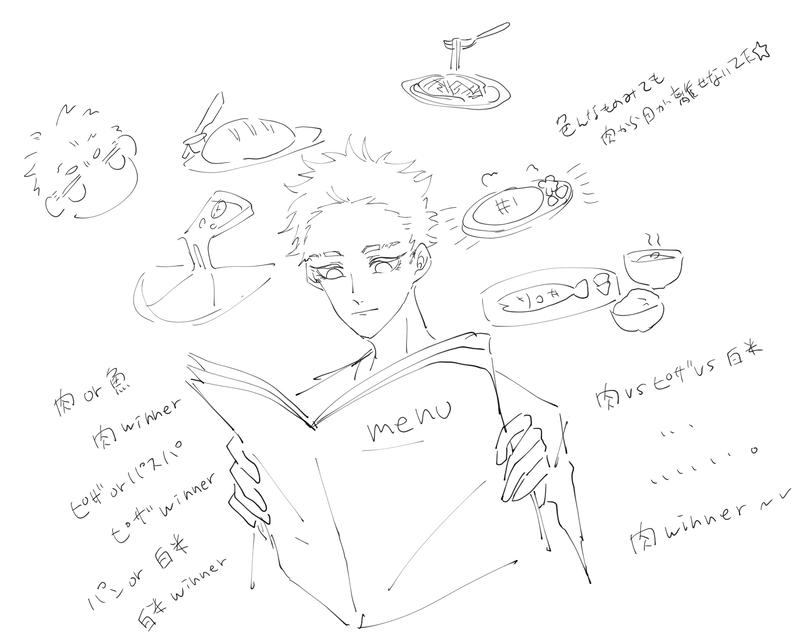 色んなものみても
肉から目が離せないでユ☆
menu
肉 or 魚
肉 winner
ピザ or パスパ
ピザ winner
パン or 白米
白米 winner
肉 vs ピザ vs 白米
肉 winner